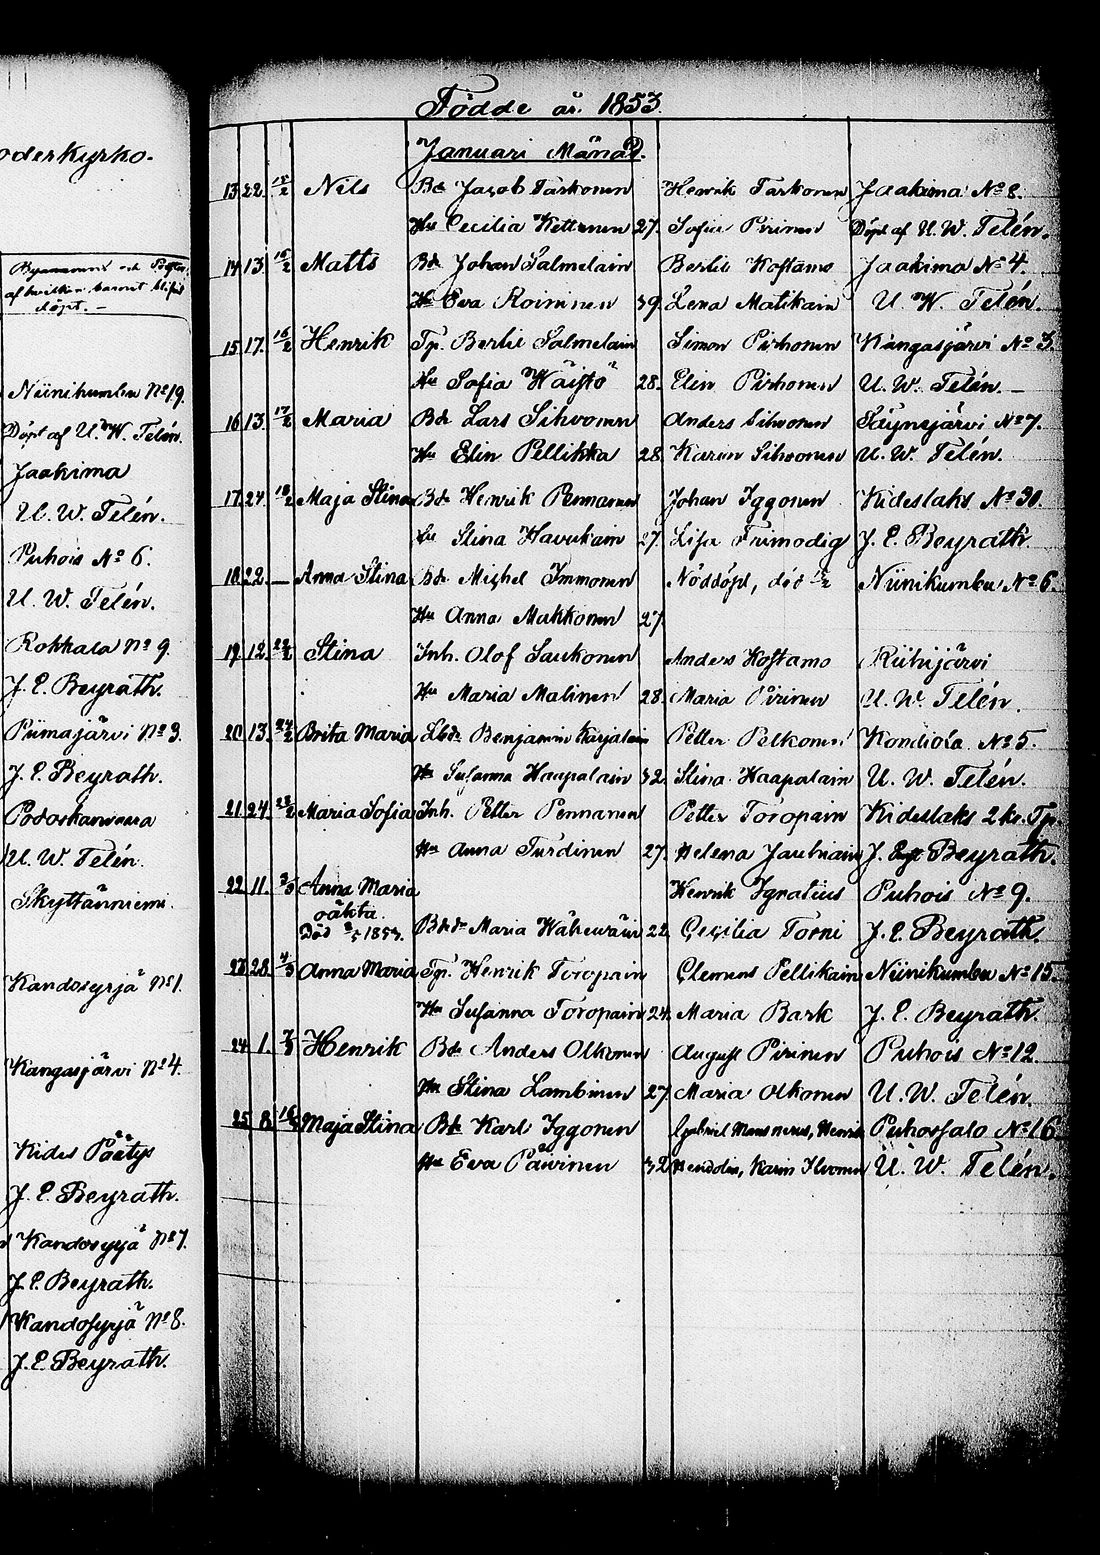 oderkyrko.
Byarnamn och Prester
af hvilken barnet blifvit
döpt. –
Niinikumbu No 19.
Döpt af U. W. Telén.
Jaakima
U. W. Telén.
Puhois No 6.
U. W. Telén.
Rokkala No 9.
J. E. Beyrath.
Piimajärvi No 3.
J. E. Beyrath.
Potoskanvaara
U. W. Telén.
Skyttänniemi.
Kandosyrjä No 1.
Kangasjärvi No 4.
Kides Päätys
J. E. Beyrath.
Kandosyrjä No 7.
J. E. Beyrath.
Kandosyrjä No 8.
J. E. Beyrath.
Födde år. 1853.
Januari Månad.
13 22. 15/2 Nils Bde Jacob Tarkonen Henrik Tarkonen Jaakima No 8.
Hu Cecilia Kettunen 27. Sofia Pirinen Döpt af U. W. Telén.
14 13. 15/2 Matts Bde Johan Salmelain Bertil Koftamo Jaakima No 4.
Hu Eva Roininen 39. Lena Matikain U. W. Telén.
15 17. 15/2 Henrik Tp. Bertil Salmelain Simon Pirhonen Kangasjärvi No 3.
Hu Sofia Wäistö 28. Elin Pirhonen U. W. Telén. –
16 13. 17/2 Maria Bde Lars Sihvonen Anders Sihvonen Säynejärvi No 7.
Hu Elin Pellikka 28. Karin Sihvonen U. W. Telén.
17. 24 18/2 Maja Stina Bde Henrik Pennanen Johan Iggonen Kideslaks No 30.
Hu Stina Havukain 27. Lisa Frimodig J. E. Beyrath.
18 22. — Anna Stina Bde Michel Immonen Nöddöpt, död Niinikumbu No 6.
Hu Anna Mukkonen 27.
19. 12. 22/2 Stina Inh. Olof Saukonen Anders Koftamo Riihijärvi
Hu Maria Malinen 28. Maria Pirinen U. W. Telén.
20 13. 24/2 Brita Maria Lbde Benjamin Karjalain Petter Pelkonen Kondiola No 5.
Hu Susanna Haapalain 32. Stina Haapalain U. W. Telén.
21. 24. Maria Sofia Inh. Petter Pennanen Petter Toropain Kideslaks 2 kr. Tp.
Hu Anna Turdinen 27. Helena Jauhiain J. E. Beyrath.
22. 11. 3/3 Anna Maria Henrik Ignatius Puhois No 9.
oäkta.
Död 1853. Bdedr Maria Wäkewäin 22. Cecilia Torni J. E. Beyrath.
23 28. 4/3 Anna Maria Tp. Henrik Toropain Clemens Pellikain Niinikumbu No 15.
Hu Susanna Toropain 24. Maria Bark J. E. Beyrath.
24 1. 7/3 Henrik Bde Anders Olkonen August Pirinen Puhois No 12.
Hu Stina Lambinen 27. Maria Olkonen U. W. Telén.
25 8. Maja Stina Bde Karl Iggonen Gabriel Henrik Puhossalo No 16.
Hu Eva Päivinen 32. Karin Ilvonen U. W. Telén.